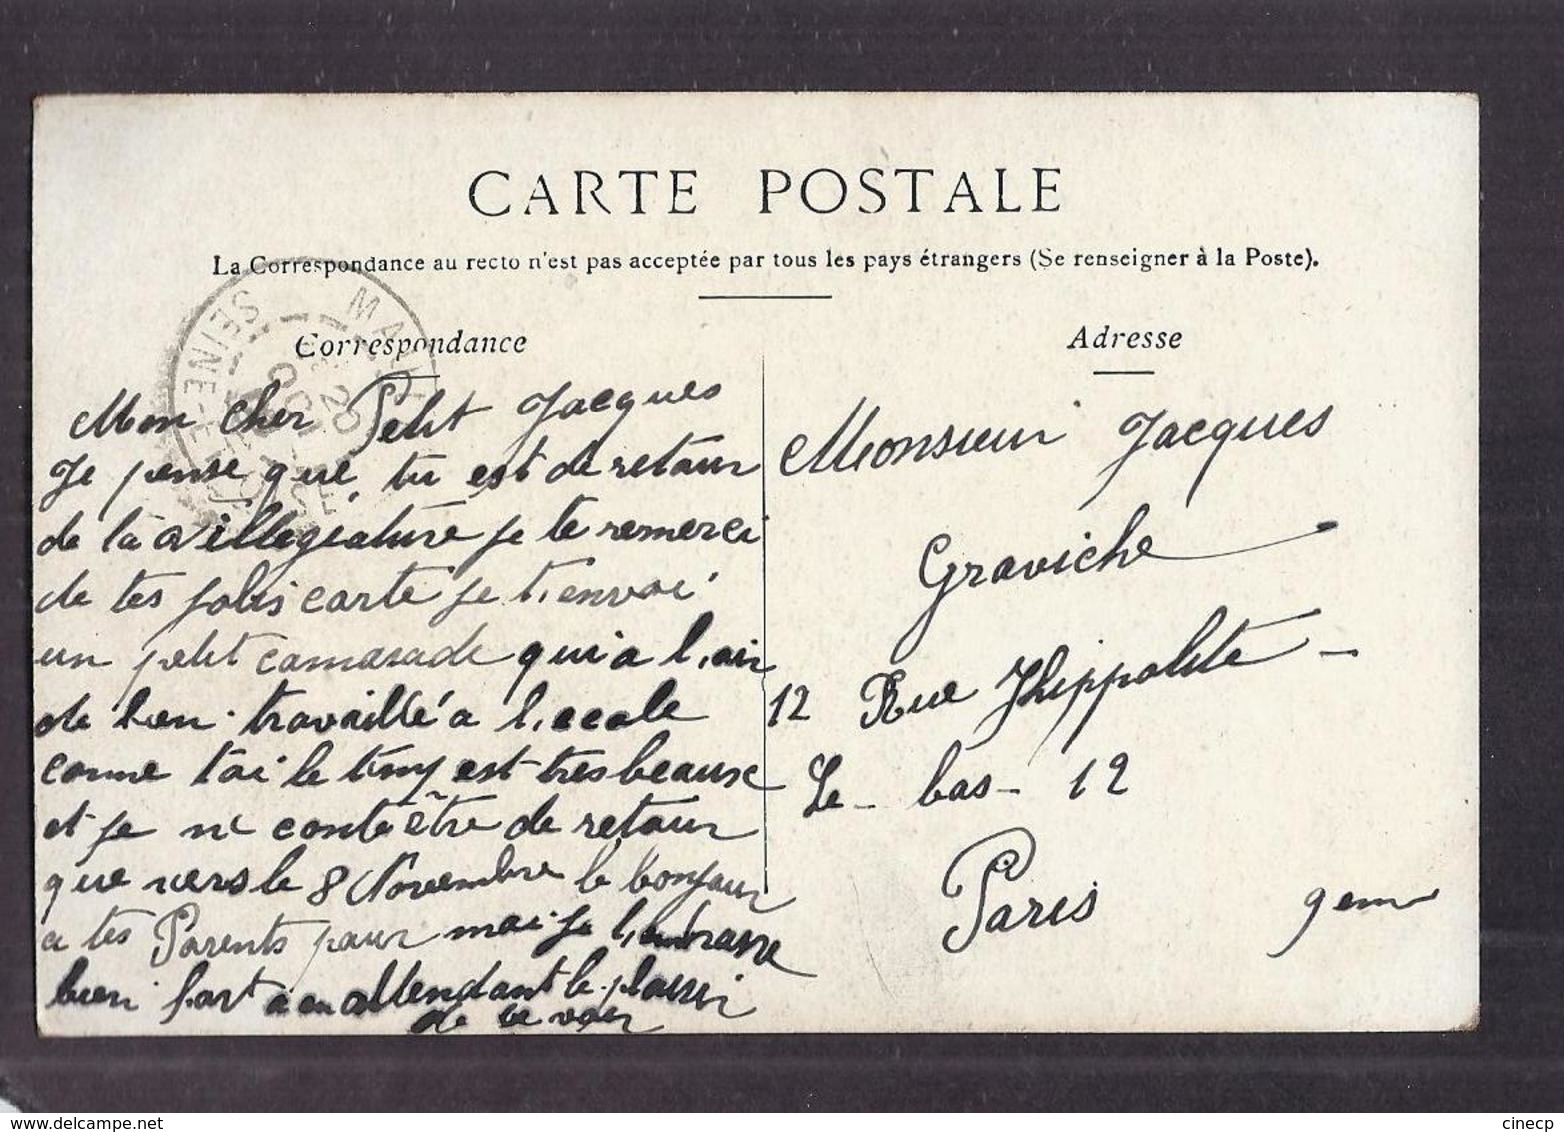 CARTE POSTALE
La Correspondance au recto n'est pas acceptée par tous les pays étrangers (Se renseigner à la Poste).
Correspondance
Mon cher Petit Jacques
Je pense que tu est de retour
de la villegiature je te remerci
de tes jolis carte je t,envoi
un petit camarade qui a l,air
de bien travaillé a l,ecole
comme toi le temp est tres beaux
et je ne conte être de retour
que vers le 8 Novembre le bonjour
a tes Parents pour moi je t,embrasse
bien fort a en attendant le plaisir
de te voir
Adresse
Monsieur Jacques
Graviche
12 Rue Hippolite
Le - bas - 12
Paris 9em
SEINE-ET-OISE
cinecp